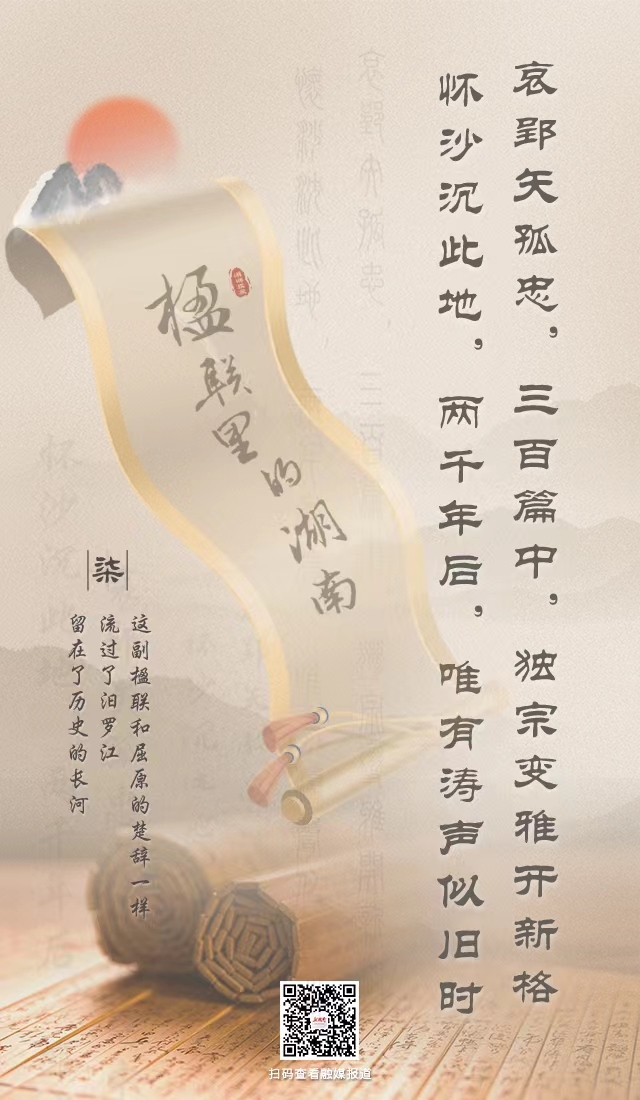 哀郢矢孤忠，三百篇中，独宗变雅开新格
怀沙沉此地，两千年后，唯有涛声似旧时
楹联里的湖南
柒
这副楹联和屈原的楚辞一样
流过了汨罗江
留在了历史的长河
扫码查看融媒报道